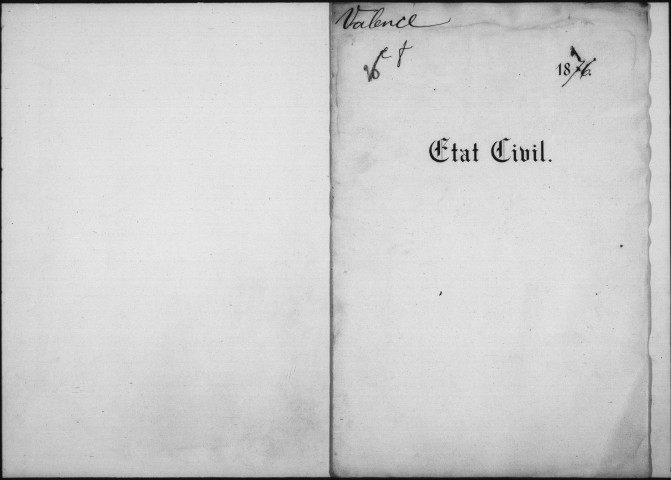 Valence
1876.
Etat Civil.